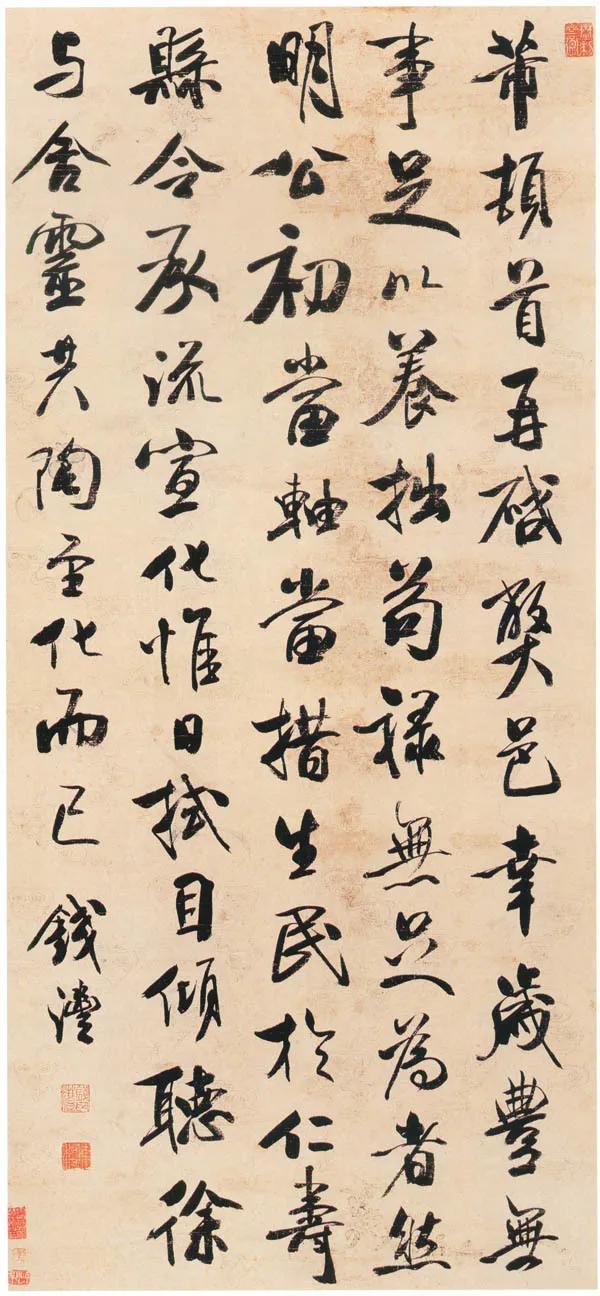 芾頓首再啟弊邑幸歲豐無
事足以養拙苟祿無足為者然
明公初當軸當措生民於仁壽
縣令承流宣化惟日拭目傾聽徐
与含靈共陶至化而已 錢灃